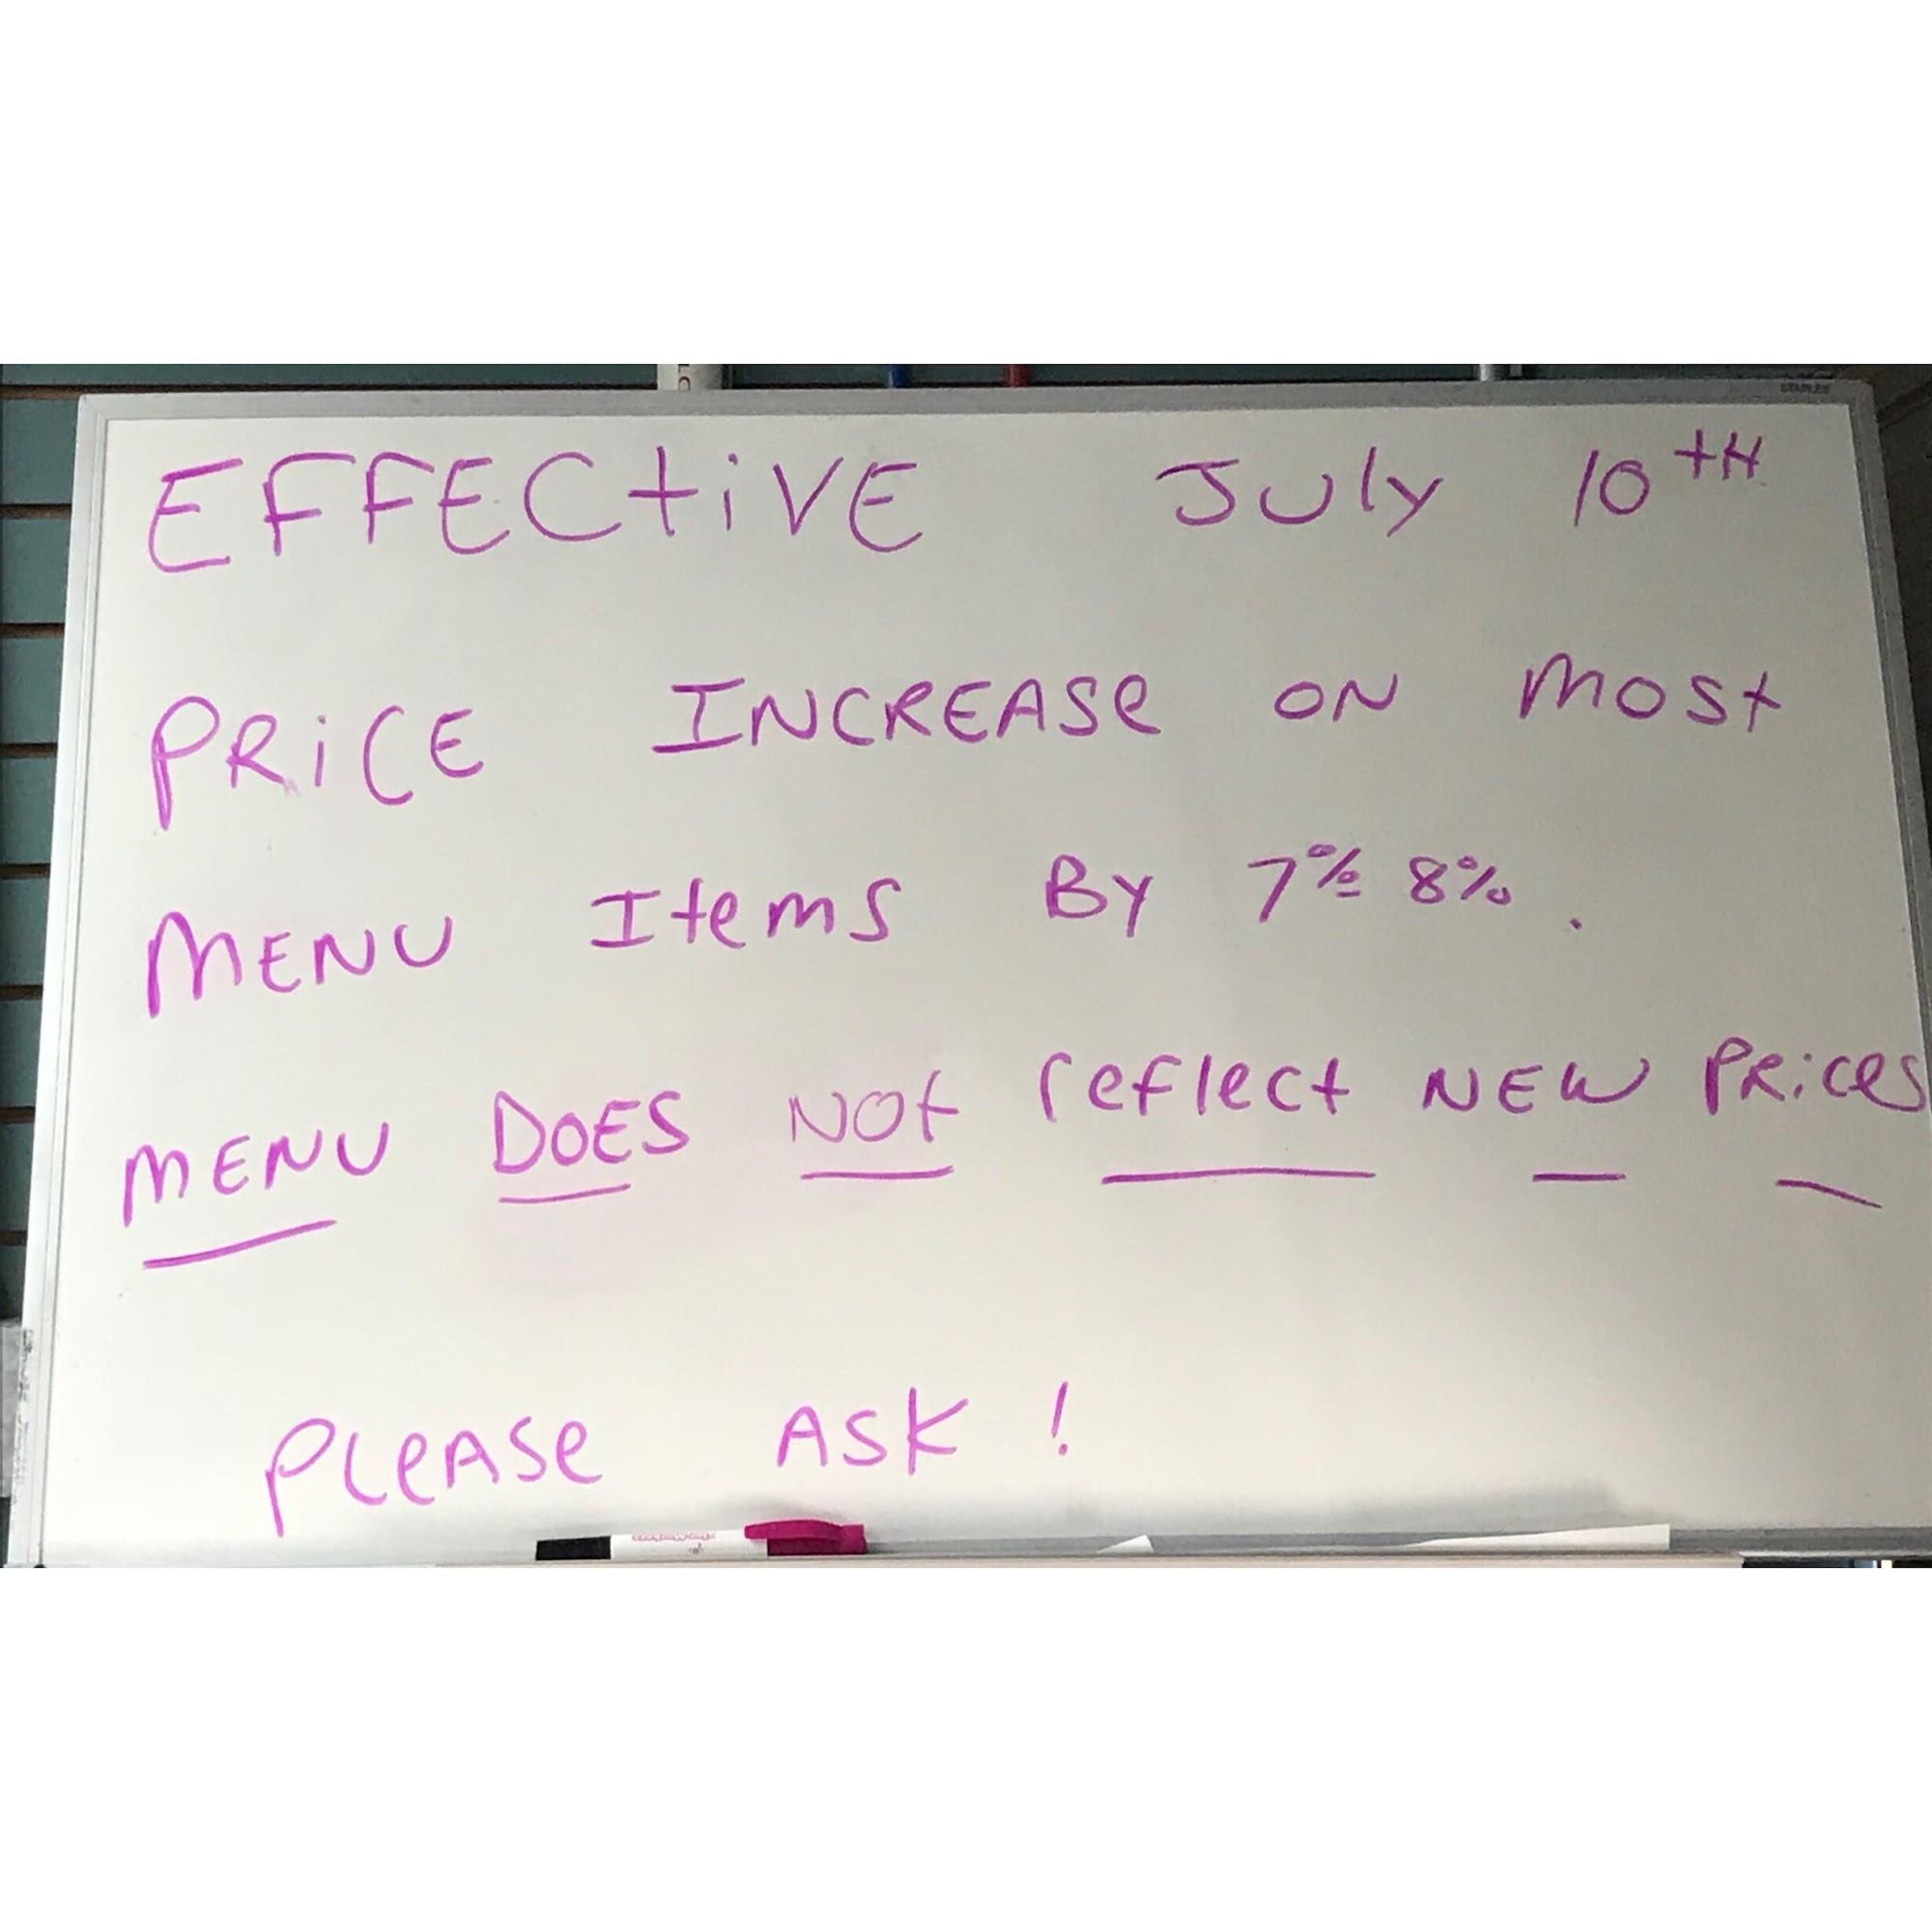 EFFECtiVE July 10tH
PRiCE INCREASe ON MOSt
MENU Items By 7% 8%.
MENU DOES NOt reflect NEW PRices
PLeASe ASK!